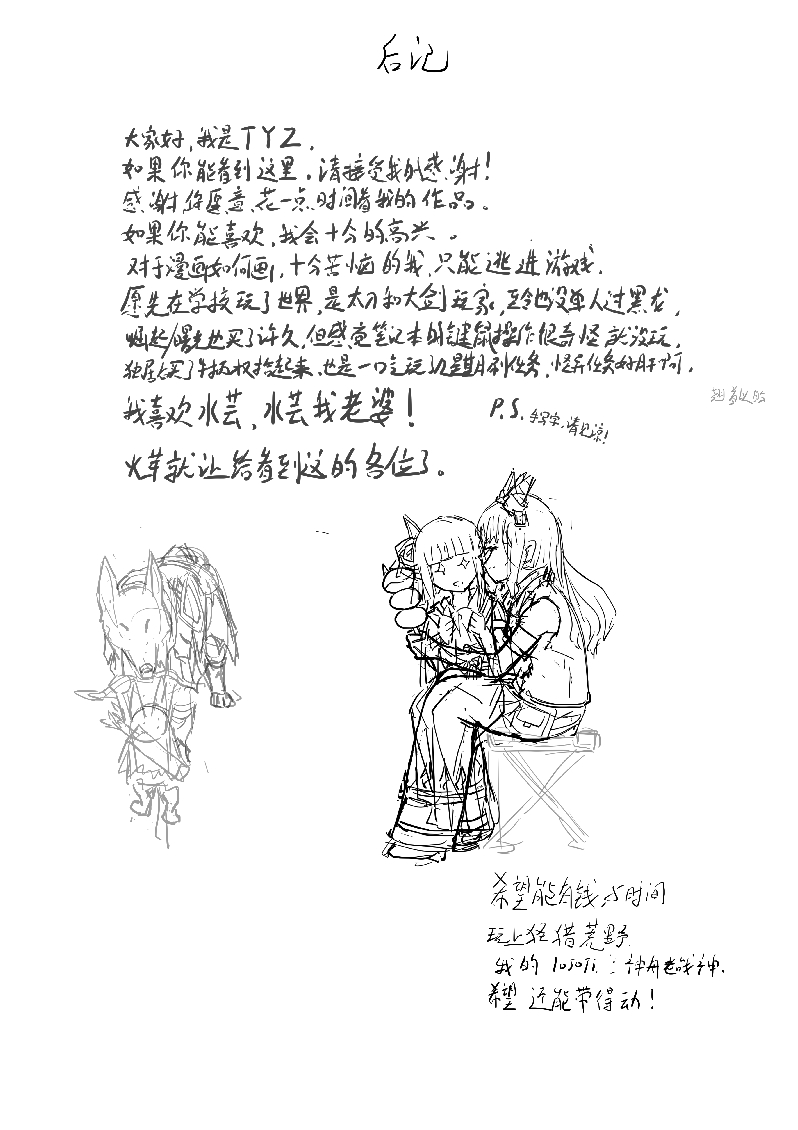 后记
大家好，我是TYZ．
如果你能看到这里，请接受我的感谢！
感谢你愿意花一点时间看我的作品。
如果你能喜欢，我会十分的高兴。
对于漫画如何画，十分苦恼的我，只能逃进游戏．
原先在学校玩了世界，是太刀和大剑玩家，至今也没单人过黑龙，
崛起/曙光也买了许久，但感觉笔记本的键鼠操作很奇怪就没玩，
买了手柄 拾起来，也是一口气玩 任务，怪异任务好肝啊．
我喜欢水芸，水芸我老婆！
P.S. 手写字，请见谅！
火芽就让给看到这的各位了。
希望能有钱与时间
玩上怪猎荒野
我的1050Ti：神舟老战神．
希望还能带得动！